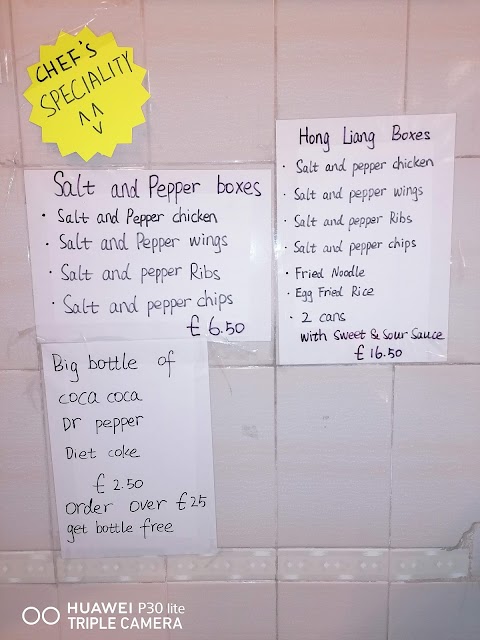 CHEF'S
SPECIALITY
Salt and Pepper boxes
· Salt and Pepper chicken
· Salt and Pepper wings
· Salt and pepper Ribs
· Salt and pepper chips
£ 6.50
Hong Liang Boxes
· Salt and pepper chicken
· Salt and pepper wings
· Salt and pepper Ribs
· Salt and pepper chips
· Fried Noodle
· Egg Fried Rice
· 2 cans
with Sweet & Sour Sauce
£ 16.50
Big bottle of
coca coca
Dr pepper
Diet coke
£ 2.50
order over £25
get bottle free
HUAWEI P30 lite
TRIPLE CAMERA